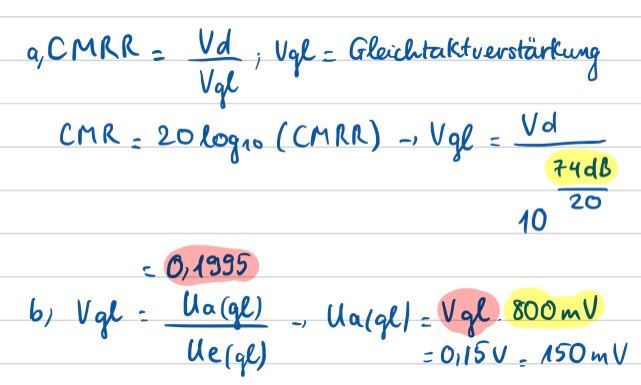 a, CMRR = Vd / Vgl ; Vgl = Gleichtaktverstärkung
CMR = 20 log10 (CMRR) → Vgl = Vd / 10^(74dB / 20)
= 0,1995
b) Vgl = Ua(gl) / Ue(gl) → Ua(gl) = Vgl · 800mV
= 0,15V = 150mV